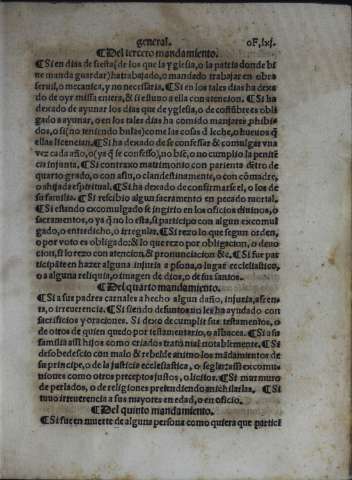 general. oF.lxj.
¶Del tercero mandamiento.
¶Si en dias de fiesta(de los que la yglesia, o la patria donde bi
ue manda guardar)ha trabajado, o mandado trabajar en obra
seruil, o mecanica, y no necessaria. ¶Si en los tales dias ha dexa
do de oyr missa entera, & si estuuo a ella con atencion. ¶Si ha
dexado de ayunar los dias que de yglesia, o de costũbre es obliga
do a ayunar, o en los tales dias ha comido manjares ꝓhibi
dos, o si(no teniendo bulas)come las cosas d̃ leche, o hueuos q̃
ellas licencian. ¶Si ha dexado de se confessar & comulgar vna
vez cada año, o(ya q̃ se confesso)no biẽ, o no cumplio la penitẽ
cia injunta. ¶Si contraxo matrimonio con parienta dẽtro de
quarto grado, o con afin, o clandestinamente, o con cõmadre,
o ahijada espiritual. ¶Si ha dexado de confirmarse el, o los de
su familia. ¶Si rescibio algun sacramento en pecado mortal.
¶Si estando excomulgado se ingirio en los oficios diuinos, o
sacramentos, o ya q̃ no lo esta, si participo con algun excomul
gado, o entredicho, o irregular. ¶Si rezo lo que segun orden,
o por voto es obligado: & lo que rezo por obligacion, o deuo
cion, si lo rezo con atencion, & pronunciacion &c. ¶Si fue par
ticipãte en hazer alguna injuria a ꝑsona, o lugar ecclesiastico,
o a alguna reliquia, o imagen de dios, o de sus santos.
¶Del quarto mandamiento.
¶Si a sus padres carnales a hecho algun daño, injuria, afren
ta, o irreuerencia. ¶Si siendo defuntos no les ha ayudado con
sacrificios y oraciones. Si dexo de cumplir sus testamentos, o
de otros de quien quedo por testamentario, o albacea. ¶Si a su
familia assi hijos como criados trato mal notablemente. ¶Si
desobedescio con malo & rebelde animo los mãdamientos de
su principe, o de la justicia ecclesiastica, o seglar: assi excomu
niones como otros preceptos justos, o licitos. ¶Si murmuro
de perlados, o de religiones pretendiendo anichilarlas. ¶Si
tuuo irreuerencia a sus mayores en edad, o en oficio.
¶Del quinto mandamiento.
¶Si fue en muerte de alguna persona como quiera que partici